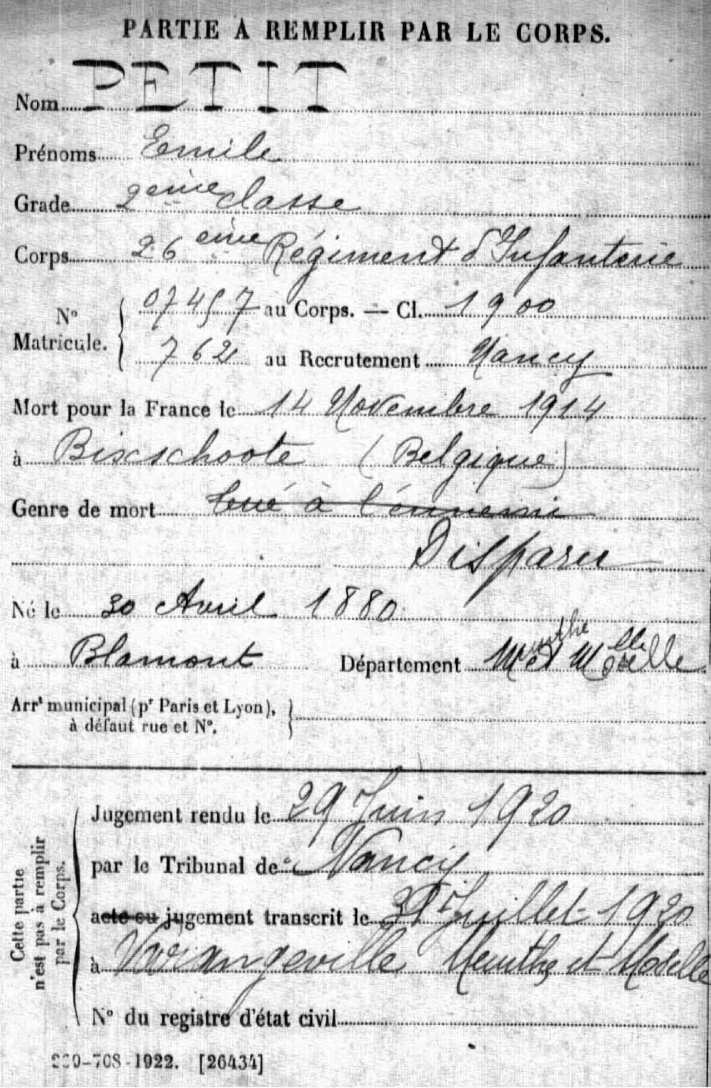 PARTIE A REMPLIR PAR LE CORPS.
Nom PETIT
Prénoms Emile
Grade 2ème classe
Corps 26ème Régiment d'Infanterie
N° Matricule. 07457 au Corps. — Cl. 1900
762 au Recrutement Nancy
Mort pour la France le 14 Novembre 1914
à Bixschoote (Belgique)
Genre de mort tué à l'ennemi
Disparu
Né le 30 Avril 1880
à Blamont Département Mthe et Moselle
Arrt municipal (pr Paris et Lyon), à défaut rue et N°.
Cette partie n'est pas à remplir par le Corps.
Jugement rendu le 29 Juin 1920
par le Tribunal de Nancy
acte ou jugement transcrit le Juillet 1920
à Varangeville Meurthe et Moselle
N° du registre d'état civil
-708-1922. [26434]